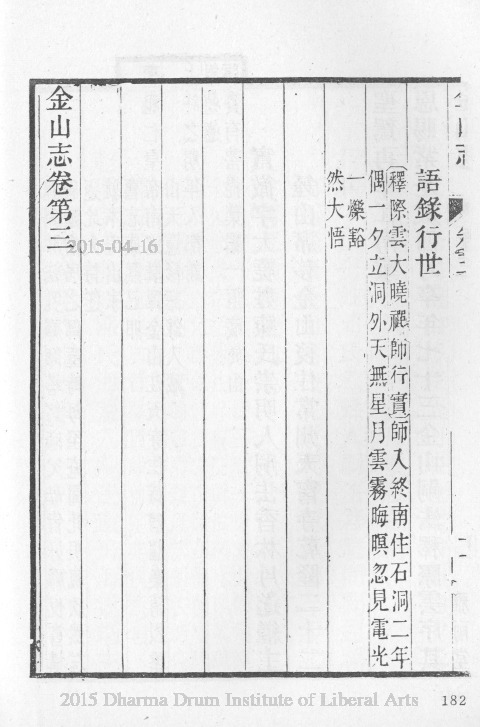 語錄行世
〔釋際雲大曉禪師行實〕師入終南住石洞二年
偶一夕立洞外天無星月雲霧晦暝忽見電光
一爍豁
然大悟
金山志卷第三
2015-04-16
2015 Dharma Drum Institute of Liberal Arts
182